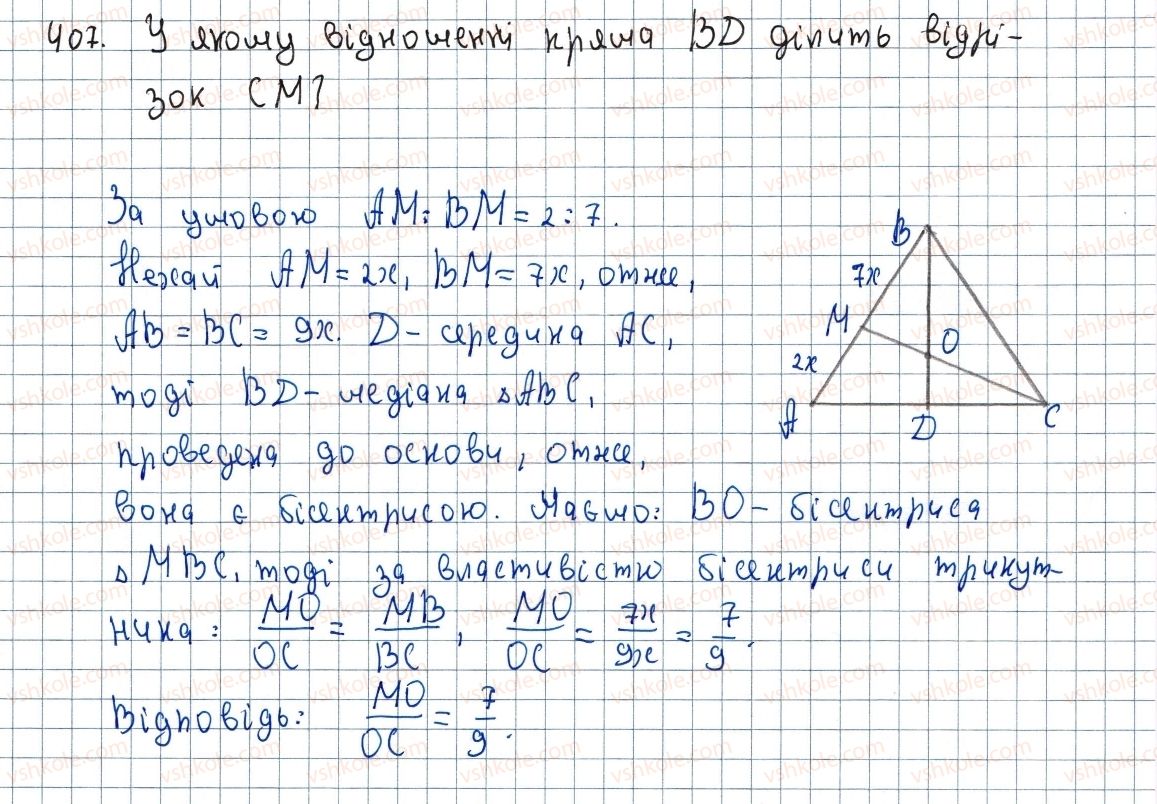 407. У якому відношенні пряма BD ділить відрі-
зок CM?
За умовою AM:BM=2:7.
Нехай AM=2x, BM=7x, отже,
AB=BC=9x. D-середина AC,
тоді BD-медіана ▵ABC,
проведена до основи, отже,
вона є бісектрисою. Маємо: BO-бісектриса
▵MBC, тоді за властивістю бісектриси трикут-
ника: MO/OC = MB/BC, MO/OC = 7x/9x = 7/9.
Відповідь: MO/OC = 7/9.
B
7x
M
O
2x
A
D
C
vshkole.com